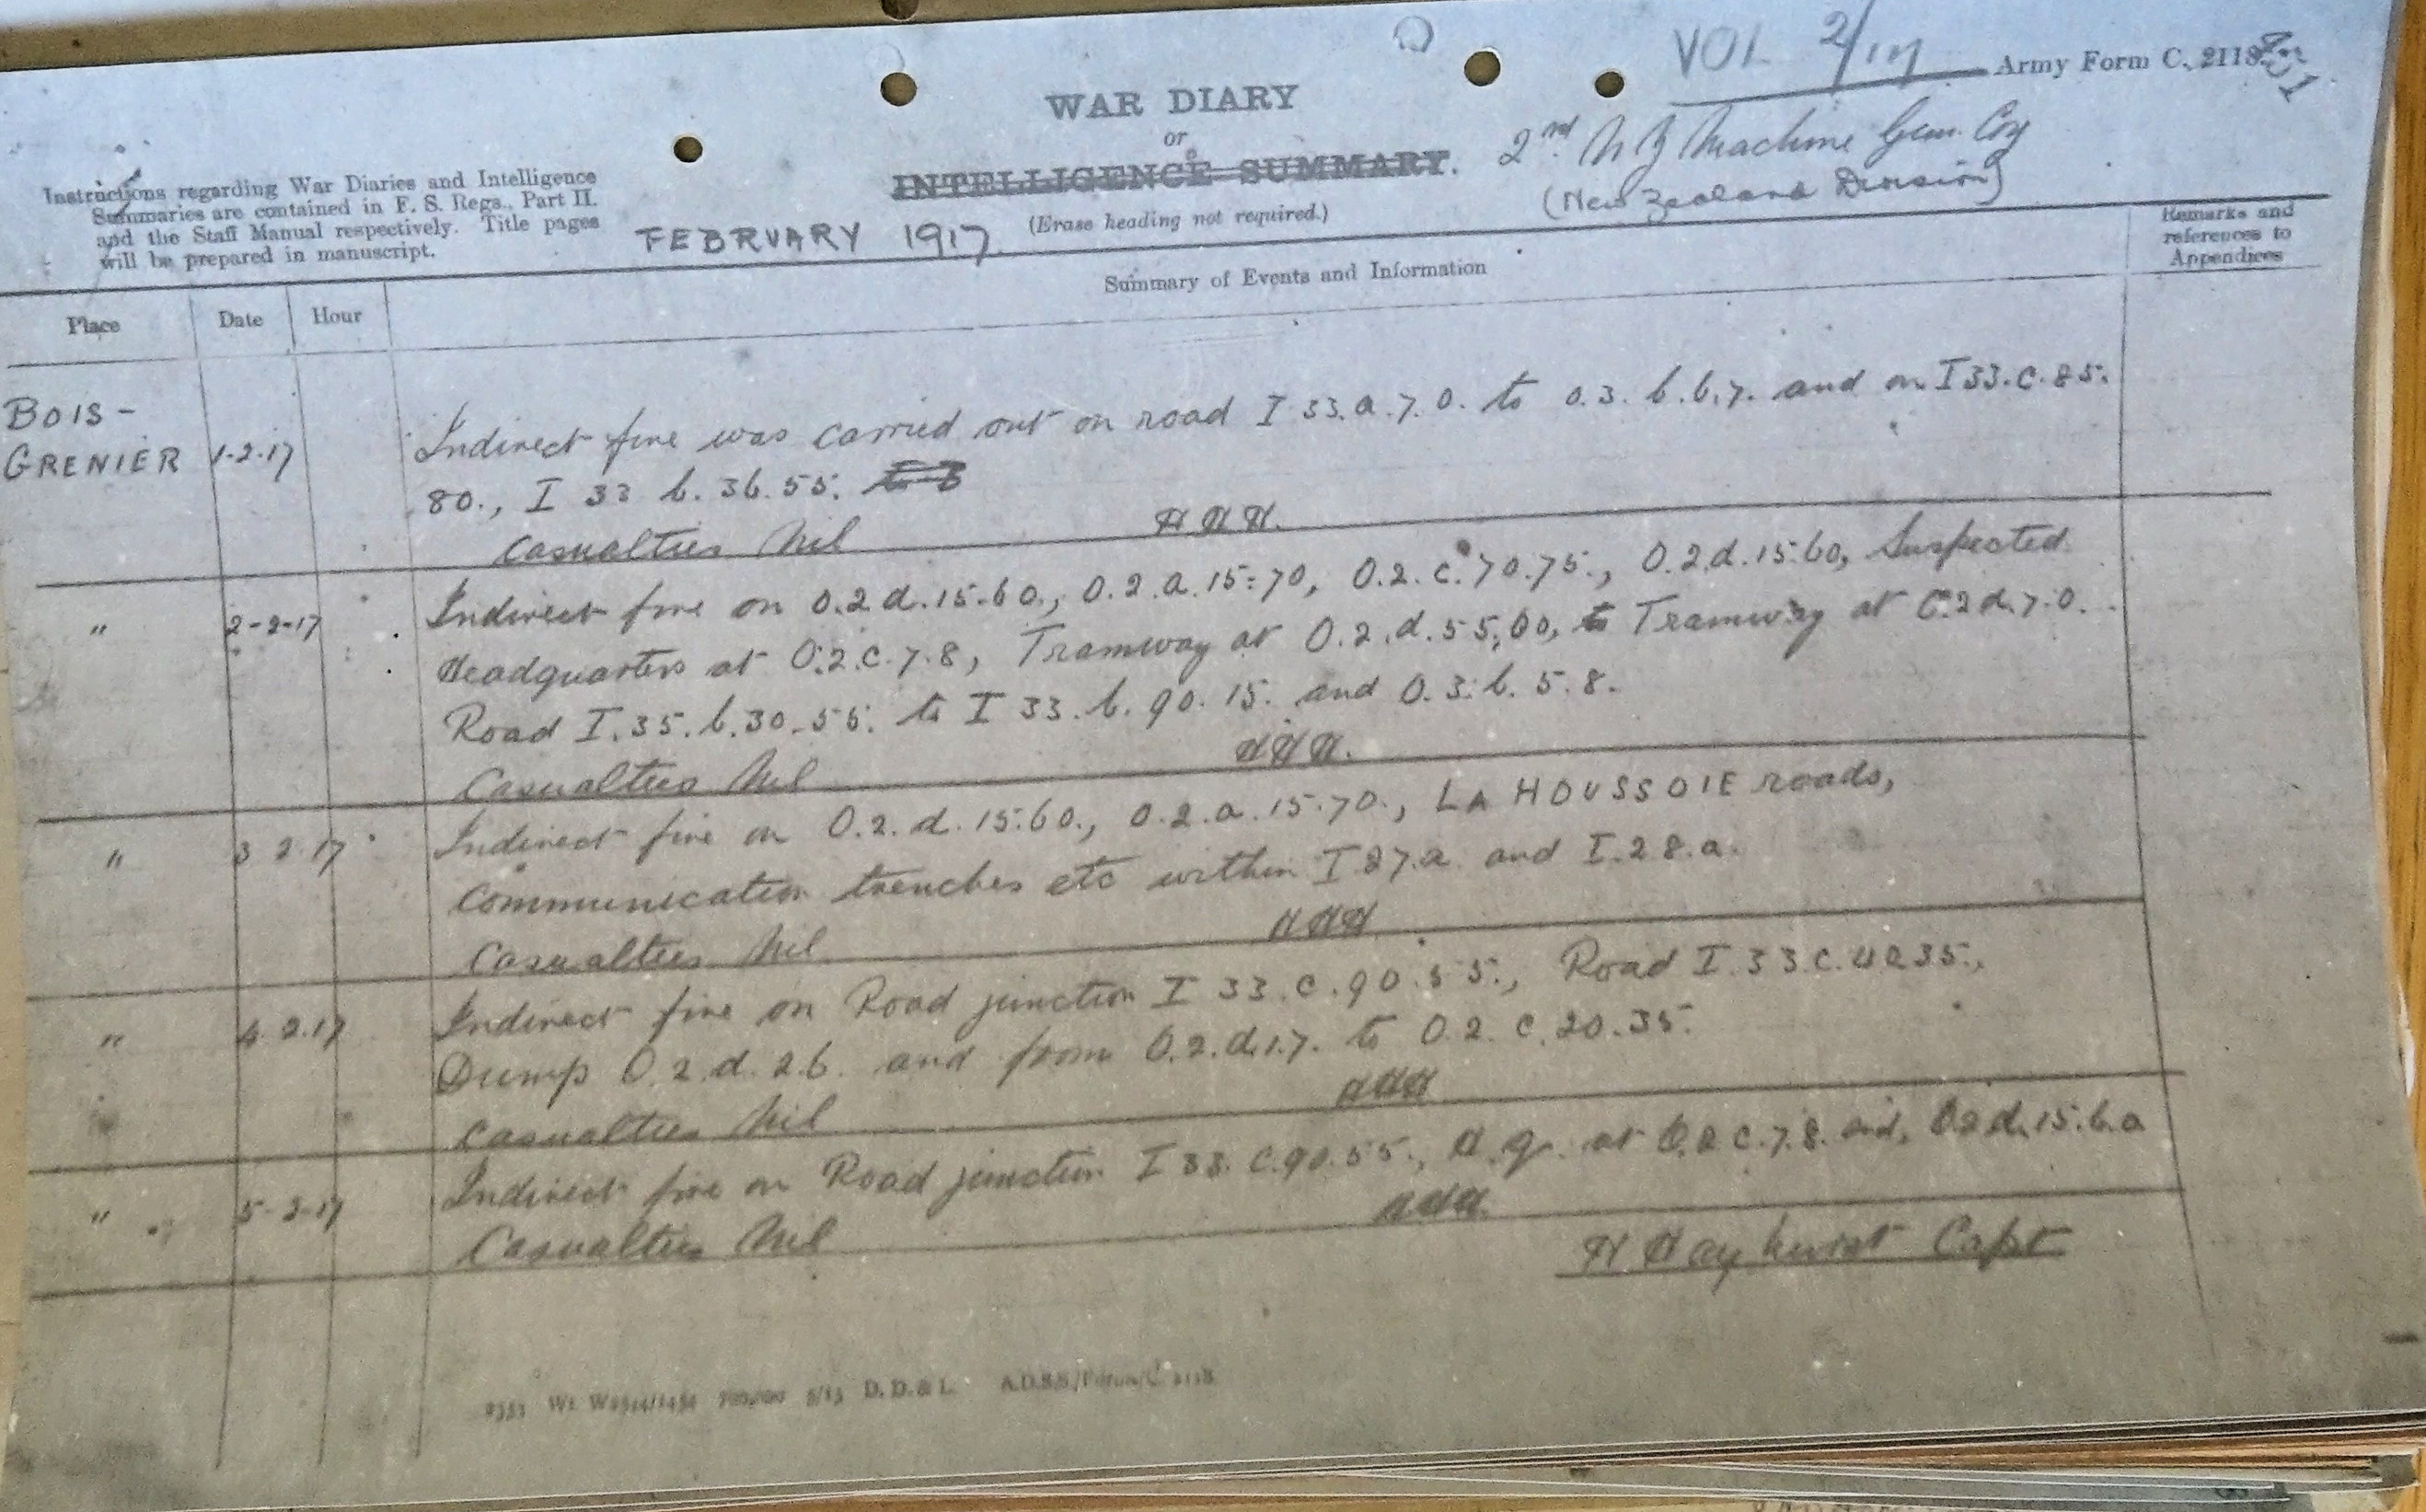 VOL 2/17
Army Form C. 2118.
WAR DIARY
or
INTELLIGENCE SUMMARY.
(Erase heading not required.)
2nd N Z Machine Gun Coy
(New Zealand Division)
Instructions regarding War Diaries and Intelligence
Summaries are contained in F. S. Regs., Part II.
and the Staff Manual respectively. Title pages
will be prepared in manuscript.
FEBRUARY 1917.
Place
Date
Hour
Summary of Events and Information
Remarks and
references to
Appendices
BOIS-
GRENIER 1-2-17
Indirect fire was carried out on road I 33.a.7.0. to O.3.b.6.7. and on I 33.c.85.
80., I 33 b. 36.55.
Casualties Nil HHH.
" 2-2-17 Indirect fire on O.2.d.15.60., O.2.a.15.70, O.2.c.70.75., O.2.d.15.60, Suspected
Headquarters at O.2.c.7.8, Tramway at O.2.d.55.00, to Tramway at O.2.d.7.0.
Road I.35.b.30.55. to I 33.b.90.15. and O.3.b.5.8.
Casualties Nil HHH.
" 3 2.17 Indirect fire on O.2.d.15.60., O.2.a.15.70., LA HOUSSOIE roads,
Communication trenches etc within I 27.a and I.28.a.
Casualties Nil HHH
" 4 2.17 Indirect fire on Road junction I 33.c.90.55., Road I.33.c.  35.,
Dump O.2.d.2.6. and from O.2.d.1.7. to O.2.c.20.35.
Casualties Nil HHH
" 5-2-17 Indirect fire on Road junction I 33.c.90.55., H.q. at O.2.c.7.8. and, O.2.d.15.6.0
Casualties Nil HHH.
H Hayhurst Capt
D. D. & L. A.D.S.S./Forms/C. 2118.